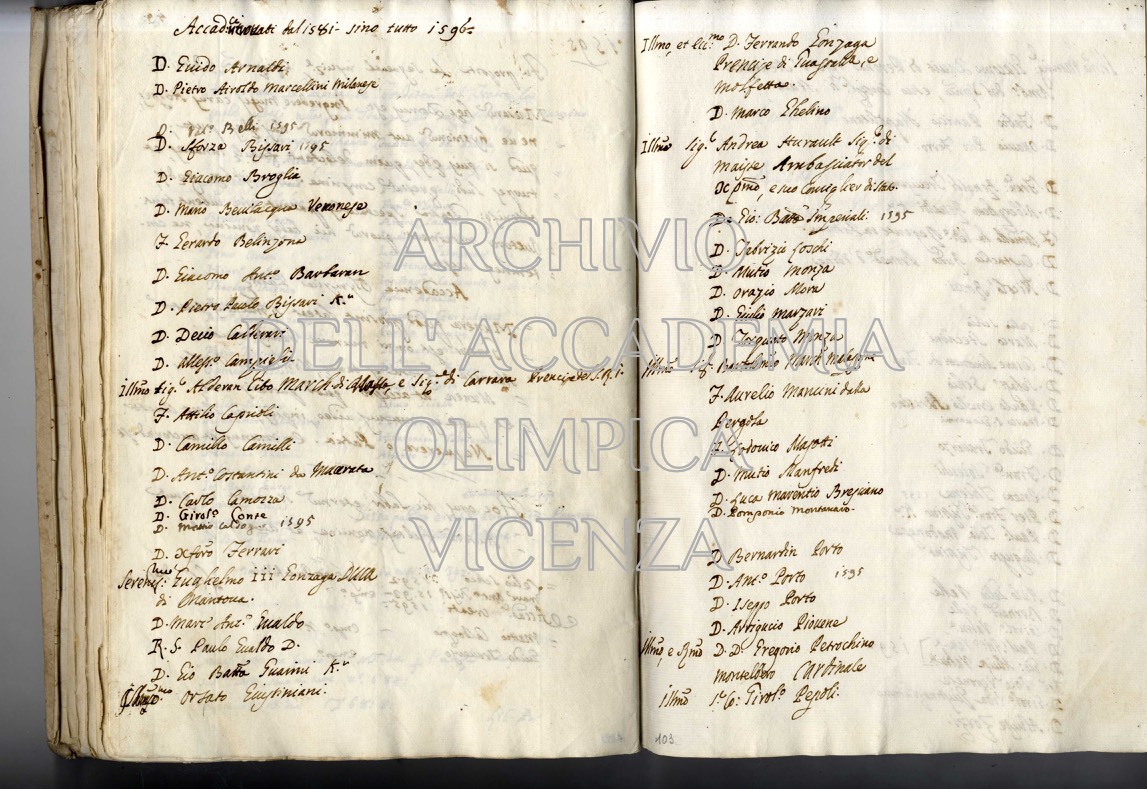 Accad:ci trovati dal 1581 sino tutto 1596
D. Guido Arnaldi
D. Pietro Airoldo Marcellini Milanese
D. Belli 1595
D. Sforza Bissari 1595
D. Giacomo Broglia
D. Mario Bevilacqua Veronese
F. Gerardo Belinzona
D. Giacomo Ant.o Barbaran
D. Pietro Paolo Bissari K.r
D. Decio Calderari
D. Aless.o Campiglia
Illmo Sig.r Alderan Cibo March. di Massa, e Sig.re di Carrara Prencipe del S. R. I.
F. Attilio Caprioli
D. Camillo Camilli
D. Ant.o Costantini da Macerata
D. Carlo Camozza
D. Girol.o Conte
D. 1595
D. Xforo Ferrari
Sereniss.mo Guglielmo III Gonzaga Duca
di Mantova.
D. Marc' Ant.o Gualdo
R. S. Paulo Gualdo D.
D. Gio Batta Guarini K.r
Orsato Giustiniani
Illmo, et Ecc.mo D. Ferrando Gonzaga
Prencipe di Guastalla, e
Molfetta.
D. Marco Ghelino
Illmo Sig.r Andrea Hurault Sig.r di
Maisse Ambasciator del
Xpmo, e suo Consiglier di Stato
D. Gio: Batta Imperiali 1595
D. Fabrizio Loschi
D. Mutio Monza
D. Orazio Mora
D. Giulio Marzari
D. Torquato Monza
Illmo Bartolomio March. Malaspina
F. Aurelio Mancini dalla
Pergola
F. Lodovico Masotti
D. Mutio Manfredi
D. Luca Marentio Bresciano
D. Pomponio Montanaro
D. Bernardin Porto
D. Ant.o Porto 1595
D. Iseppo Porto
D. Arrigucio Piovene
Illmo, e Rmo D. D. Gregorio Petrochino
Montelbero Cardinale
Illmo S.r Co: Girol.o Pepoli
103
ARCHIVIO
DELL'ACCADEMIA
OLIMPICA
VICENZA